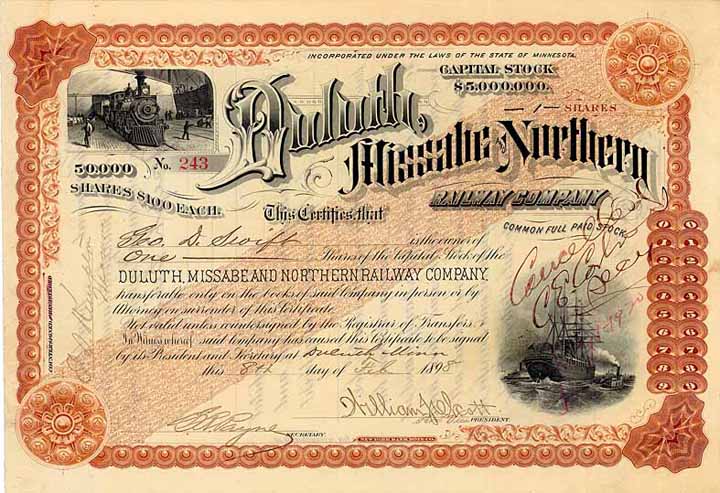 INCORPORATED UNDER THE LAWS OF THE STATE OF MINNESOTA.
CAPITAL STOCK
$5.000.000.
1 SHARES
50.000
SHARES $100 EACH.
No. 243
Duluth,
Missabe and Northern
RAILWAY COMPANY
COMMON FULL PAID STOCK
This Certifies that
Geo. D. Swift is the owner of
One Shares of the Capital Stock of the
DULUTH, MISSABE AND NORTHERN RAILWAY COMPANY,
transferable only on the books of said Company in person or by
Attorney on surrender of this Certificate.
Not valid unless countersigned by the Registrar of Transfers.
In Witness whereof said Company has caused this Certificate to be signed
by its President and Secretary at Duluth Minn
this 8th day of Feb 1898
SECRETARY.
PRESIDENT
NEW YORK BANK NOTE CO.
COUNTERSIGNED AND REGISTERED
Cancelled
Secy